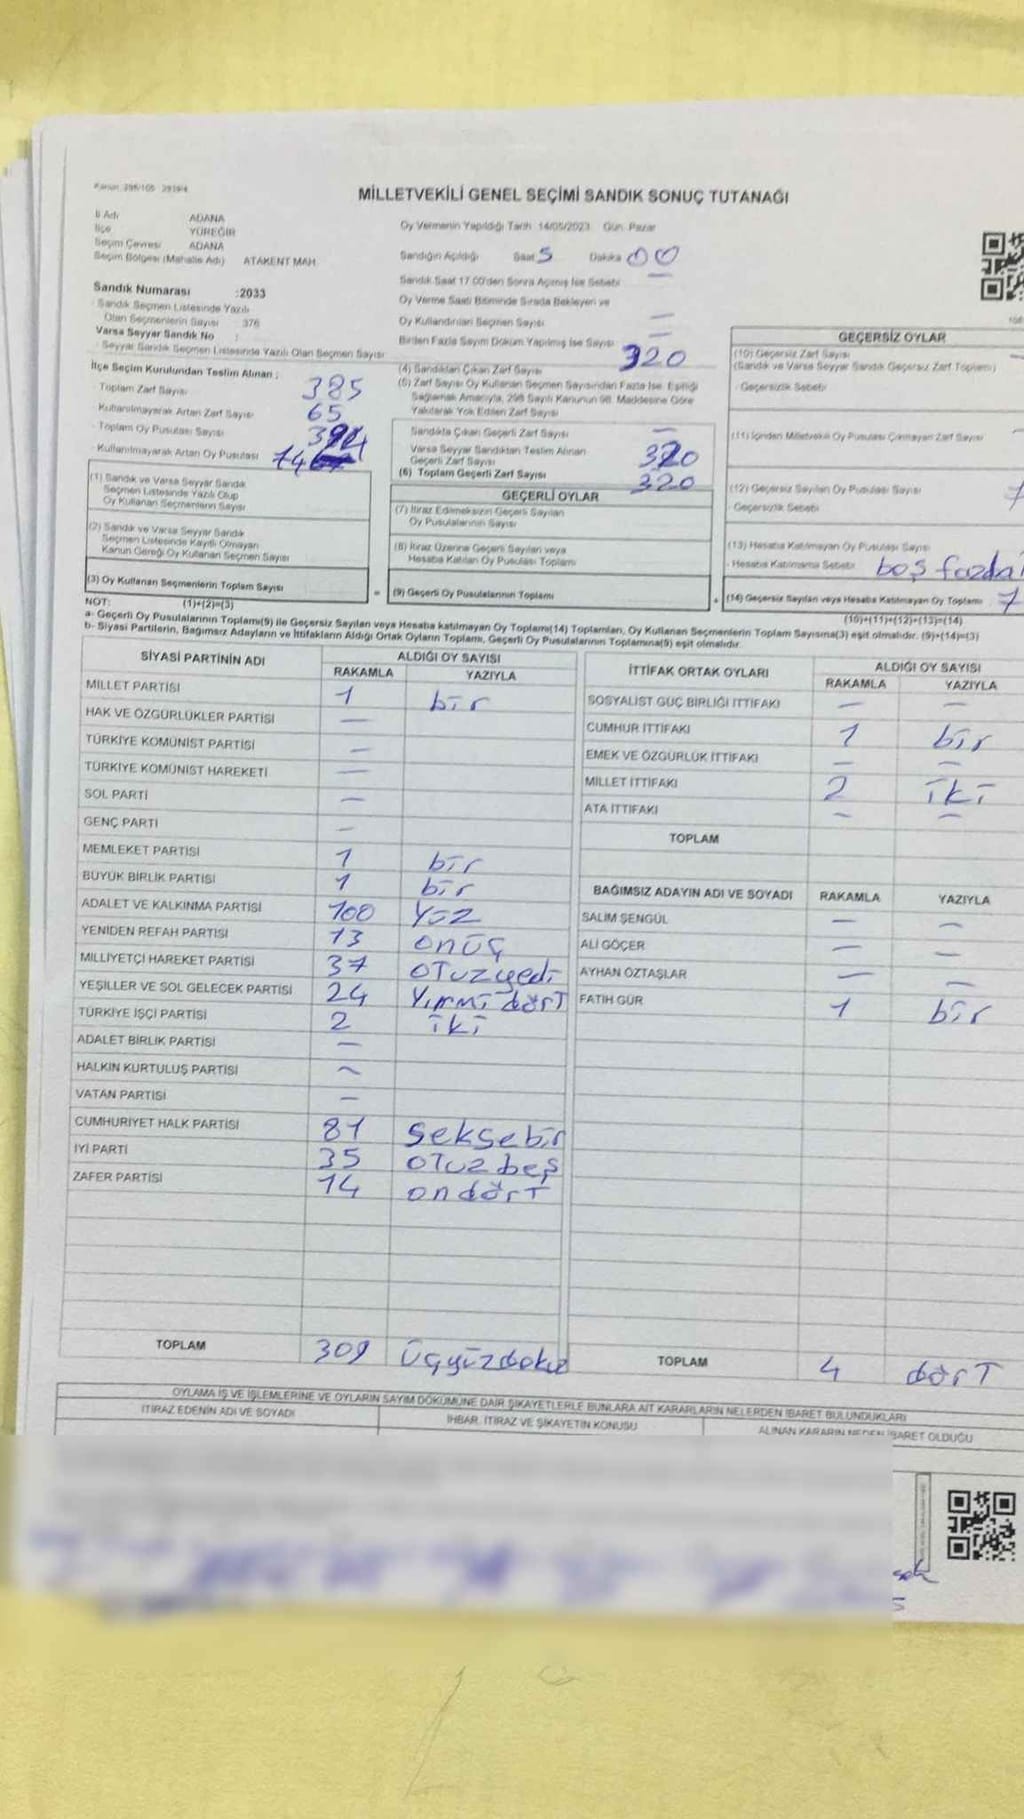 MİLLETVEKİLİ GENEL SEÇİMİ SANDIK SONUÇ TUTANAĞI
İl Adı ADANA
İlçe YÜREĞİR
Seçim Çevresi ADANA
Seçim Bölgesi (Mahalle Adı) ATAKENT MAH.
Sandık Numarası :2033
Sandık Seçmen Listesinde Yazılı
Olan Seçmenlerin Sayısı : 376
Varsa Seyyar Sandık No :
Seyyar Sandık Seçmen Listesinde Yazılı Olan Seçmen Sayısı
İlçe Seçim Kurulundan Teslim Alınan ;
Toplam Zarf Sayısı 385
Kullanılmayarak Artan Zarf Sayısı 65
Toplam Oy Pusulası Sayısı
Kullanılmayarak Artan Oy Pusulası 74
(1) Sandık ve Varsa Seyyar Sandık
Seçmen Listesinde Yazılı Olup
Oy Kullanan Seçmenlerin Sayısı
(2) Sandık ve Varsa Seyyar Sandık
Seçmen Listesinde Kayıtlı Olmayan
Kanun Gereği Oy Kullanan Seçmen Sayısı
(3) Oy Kullanan Seçmenlerin Toplam Sayısı
Oy Vermenin Yapıldığı Tarih 14/05/2023 Gün Pazar
Sandığın Açıldığı Saat 5 Dakika 00
Sandık Saat 17.00'den Sonra Açılmış İse Sebebi —
Oy Verme Saati Bitiminde Sırada Bekleyen ve
Oy Kullandırılan Seçmen Sayısı —
Birden Fazla Sayım Döküm Yapılmış İse Sayısı —
(4) Sandıktan Çıkan Zarf Sayısı 320
(5) Zarf Sayısı Oy Kullanan Seçmen Sayısından Fazla İse, Eşitliği
Sağlamak Amacıyla, 298 Sayılı Kanunun 98. Maddesine Göre
Yakılarak Yok Edilen Zarf Sayısı
Sandıkta Çıkan Geçerli Zarf Sayısı —
Varsa Seyyar Sandıktan Teslim Alınan
Geçerli Zarf Sayısı 320
(6) Toplam Geçerli Zarf Sayısı 320
GEÇERLİ OYLAR
(7) İtiraz Edilmeksizin Geçerli Sayılan
Oy Pusulalarının Sayısı
(8) İtiraz Üzerine Geçerli Sayılan veya
Hesaba Katılan Oy Pusulası Toplamı
= (9) Geçerli Oy Pusulalarının Toplamı
GEÇERSİZ OYLAR
(10) Geçersiz Zarf Sayısı
(Sandık ve Varsa Seyyar Sandık Geçersiz Zarf Toplamı)
Geçersizlik Sebebi
(11) İçinden Milletvekili Oy Pusulası Çıkmayan Zarf Sayısı —
(12) Geçersiz Sayılan Oy Pusulası Sayısı 7
Geçersizlik Sebebi
(13) Hesaba Katılmayan Oy Pusulası Sayısı
Hesaba Katılmama Sebebi boş fazla
+ (14) Geçersiz Sayılan veya Hesaba Katılmayan Oy Toplamı 7
NOT: (1)+(2)=(3) (10)+(11)+(12)+(13)=(14)
a- Geçerli Oy Pusulalarının Toplamı(9) ile Geçersiz Sayılan veya Hesaba katılmayan Oy Toplamı(14) Toplamları, Oy Kullanan Seçmenlerin Toplam Sayısına(3) eşit olmalıdır. (9)+(14)=(3)
b- Siyasi Partilerin, Bağımsız Adayların ve İttifakların Aldığı Ortak Oyların Toplamı, Geçerli Oy Pusulalarının Toplamına(9) eşit olmalıdır.
SİYASİ PARTİNİN ADI ALDIĞI OY SAYISI
RAKAMLA YAZIYLA
MİLLET PARTİSİ 1 bir
HAK VE ÖZGÜRLÜKLER PARTİSİ —
TÜRKİYE KOMÜNİST PARTİSİ —
TÜRKİYE KOMÜNİST HAREKETİ —
SOL PARTİ —
GENÇ PARTİ —
MEMLEKET PARTİSİ 1 bir
BÜYÜK BİRLİK PARTİSİ 1 bir
ADALET VE KALKINMA PARTİSİ 100 Yüz
YENİDEN REFAH PARTİSİ 13 onüç
MİLLİYETÇİ HAREKET PARTİSİ 37 oTuzyedi
YEŞİLLER VE SOL GELECEK PARTİSİ 24 Yirmi dörT
TÜRKİYE İŞÇİ PARTİSİ 2 iki
ADALET BİRLİK PARTİSİ —
HALKIN KURTULUŞ PARTİSİ —
VATAN PARTİSİ —
CUMHURİYET HALK PARTİSİ 81 seksebir
İYİ PARTİ 35 oTuz beş
ZAFER PARTİSİ 14 ondörT
TOPLAM 309 üçyüzdokuz
İTTİFAK ORTAK OYLARI ALDIĞI OY SAYISI
RAKAMLA YAZIYLA
SOSYALİST GÜÇ BİRLİĞİ İTTİFAKI — —
CUMHUR İTTİFAKI 1 bir
EMEK VE ÖZGÜRLÜK İTTİFAKI — —
MİLLET İTTİFAKI 2 iki
ATA İTTİFAKI — —
TOPLAM
BAĞIMSIZ ADAYIN ADI VE SOYADI RAKAMLA YAZIYLA
SALİM ŞENGÜL — —
ALİ GÖÇER — —
AYHAN ÖZTAŞLAR — —
FATİH GÜR 1 bir
TOPLAM 4 dörT
OYLAMA İŞ VE İŞLEMLERİNE VE OYLARIN SAYIM DÖKÜMÜNE DAİR ŞİKAYETLERLE BUNLARA AİT KARARLARIN NELERDEN İBARET BULUNDUKLARI
İTİRAZ EDENİN ADI VE SOYADI İHBAR, İTİRAZ VE ŞİKAYETİN KONUSU ALINAN KARARIN NEDEN İBARET OLDUĞU